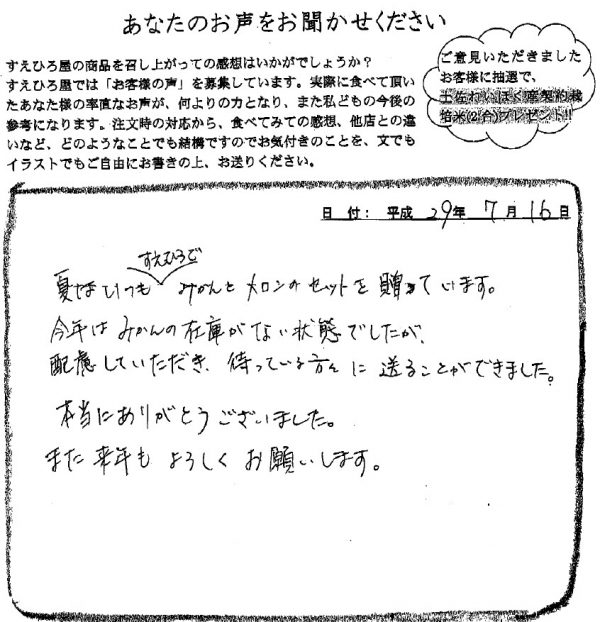 あなたのお声をお聞かせください
すえひろ屋の商品を召し上がっての感想はいかがでしょうか？
すえひろ屋では「お客様の声」を募集しています。実際に食べて頂い
たあなた様の率直なお声が、何よりの力となり、また私どもの今後の
参考になります。注文時の対応から、食べてみての感想、他店との違
いなど、どのようなことでも結構ですのでお気付きのことを、文でも
イラストでもご自由にお書きの上、お送りください。
ご意見いただきました
お客様に抽選で、
土佐れいほく産契約栽
培米(2合)プレゼント!!
日 付： 平成 29年 7月 16日
すえひろで
夏はいつも みかんとメロンのセットを贈っています。
今年はみかんの在庫がない状態でしたが、
配慮していただき、待っている方々に送ることができました。
本当にありがとうございました。
また来年もよろしくお願いします。